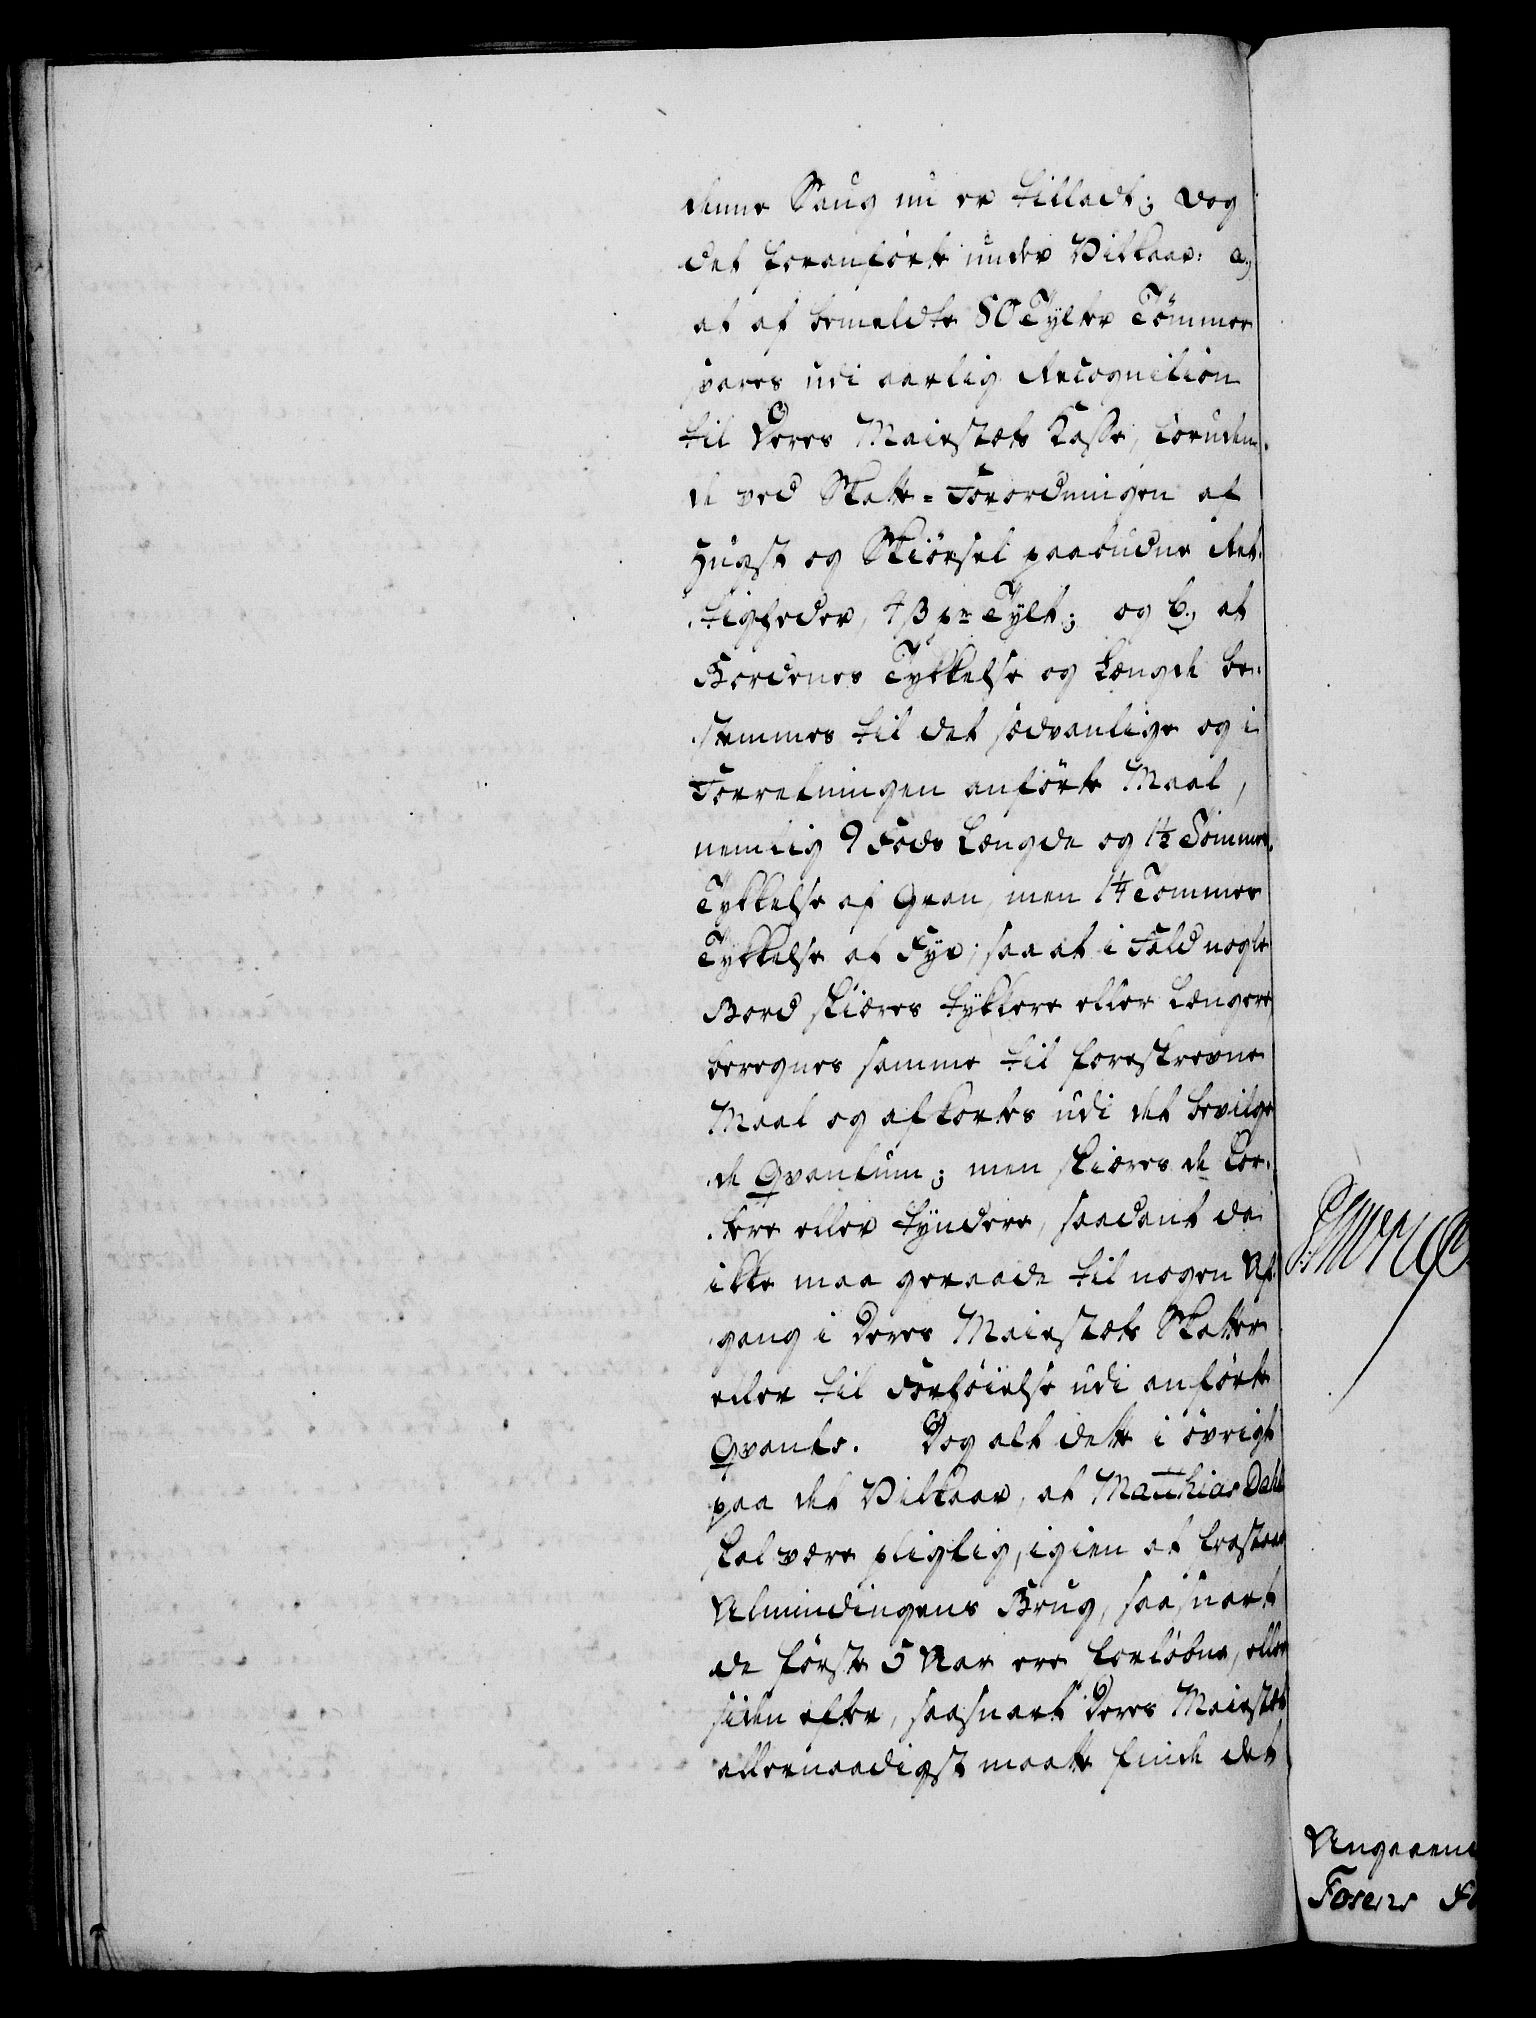 denne Saug nu er tilladt; dog
det foranførte under Vilkaar: a,
at af bemeldte 80 Tylter Tømmer
svares udi aarlig Recognition
til Deres Maiestæts Kasse, foruden
de ved Skatte-Forordningen af
Hugst og Skiørsel paabudne Ret-
tigheder, 4 β pr Tylt; og b, at
Bordenes Tykkelse og Længde be-
stemmes til det sædvanlige og i
Forretningen anførte Maal,
nemlig 9 Fods Længde og 1½ Tommes
Tykkelse af Gran, men 1¼ Tommes
Tykkelse af Fyr; saa at i Fald nogle
Bord skiæres tykkere eller længere
beregnes samme til foreskrevne
Maal og afkortes udi det bevilge-
de Qvantum; men skiæres de kor-
tere eller tyndere, saadant da
ikke maa geraade til nogen Af-
gang i Deres Maiestæts Skatter
eller til Forhøielse udi anførte
Qvanto. Dog alt dette i øvrigt
paa det Vilkaar, at Matthias Dahl
skal være pligtig, igien at fratræde
Almindingens Brug, saasnart
de første 5 Aar ere forløbne, eller
siden efter, saasnart Deres Maiestæt
allernaadigst maatte finde det
Angaaend
Fosens